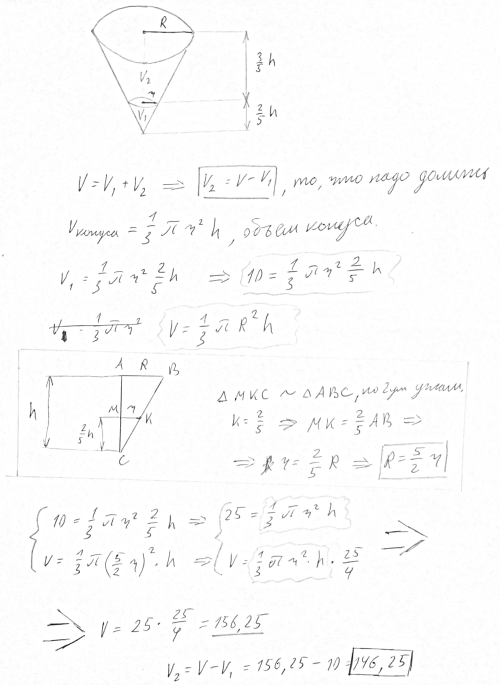 R
3/5 h
V₂
r
V₁
2/5 h
V = V₁ + V₂ ⇒ V₂ = V - V₁, то, что надо долить
Vконуса = 1/3 π r² h, объем конуса.
V₁ = 1/3 π r² 2/5 h ⇒ 10 = 1/3 π r² 2/5 h
V = 1/3 π R² h
A R B
h M r K
2/5 h
C
Δ MKC ~ Δ ABC, по 2ум углам.
K = 2/5 ⇒ MK = 2/5 AB ⇒
⇒ r = 2/5 R ⇒ R = 5/2 r
10 = 1/3 π r² 2/5 h ⇒ 25 = 1/3 π r² h
V = 1/3 π (5/2 r)² · h ⇒ V = 1/3 π r² · h · 25/4 ⇒
⇒ V = 25 · 25/4 = 156,25
V₂ = V - V₁ = 156,25 - 10 = 146,25